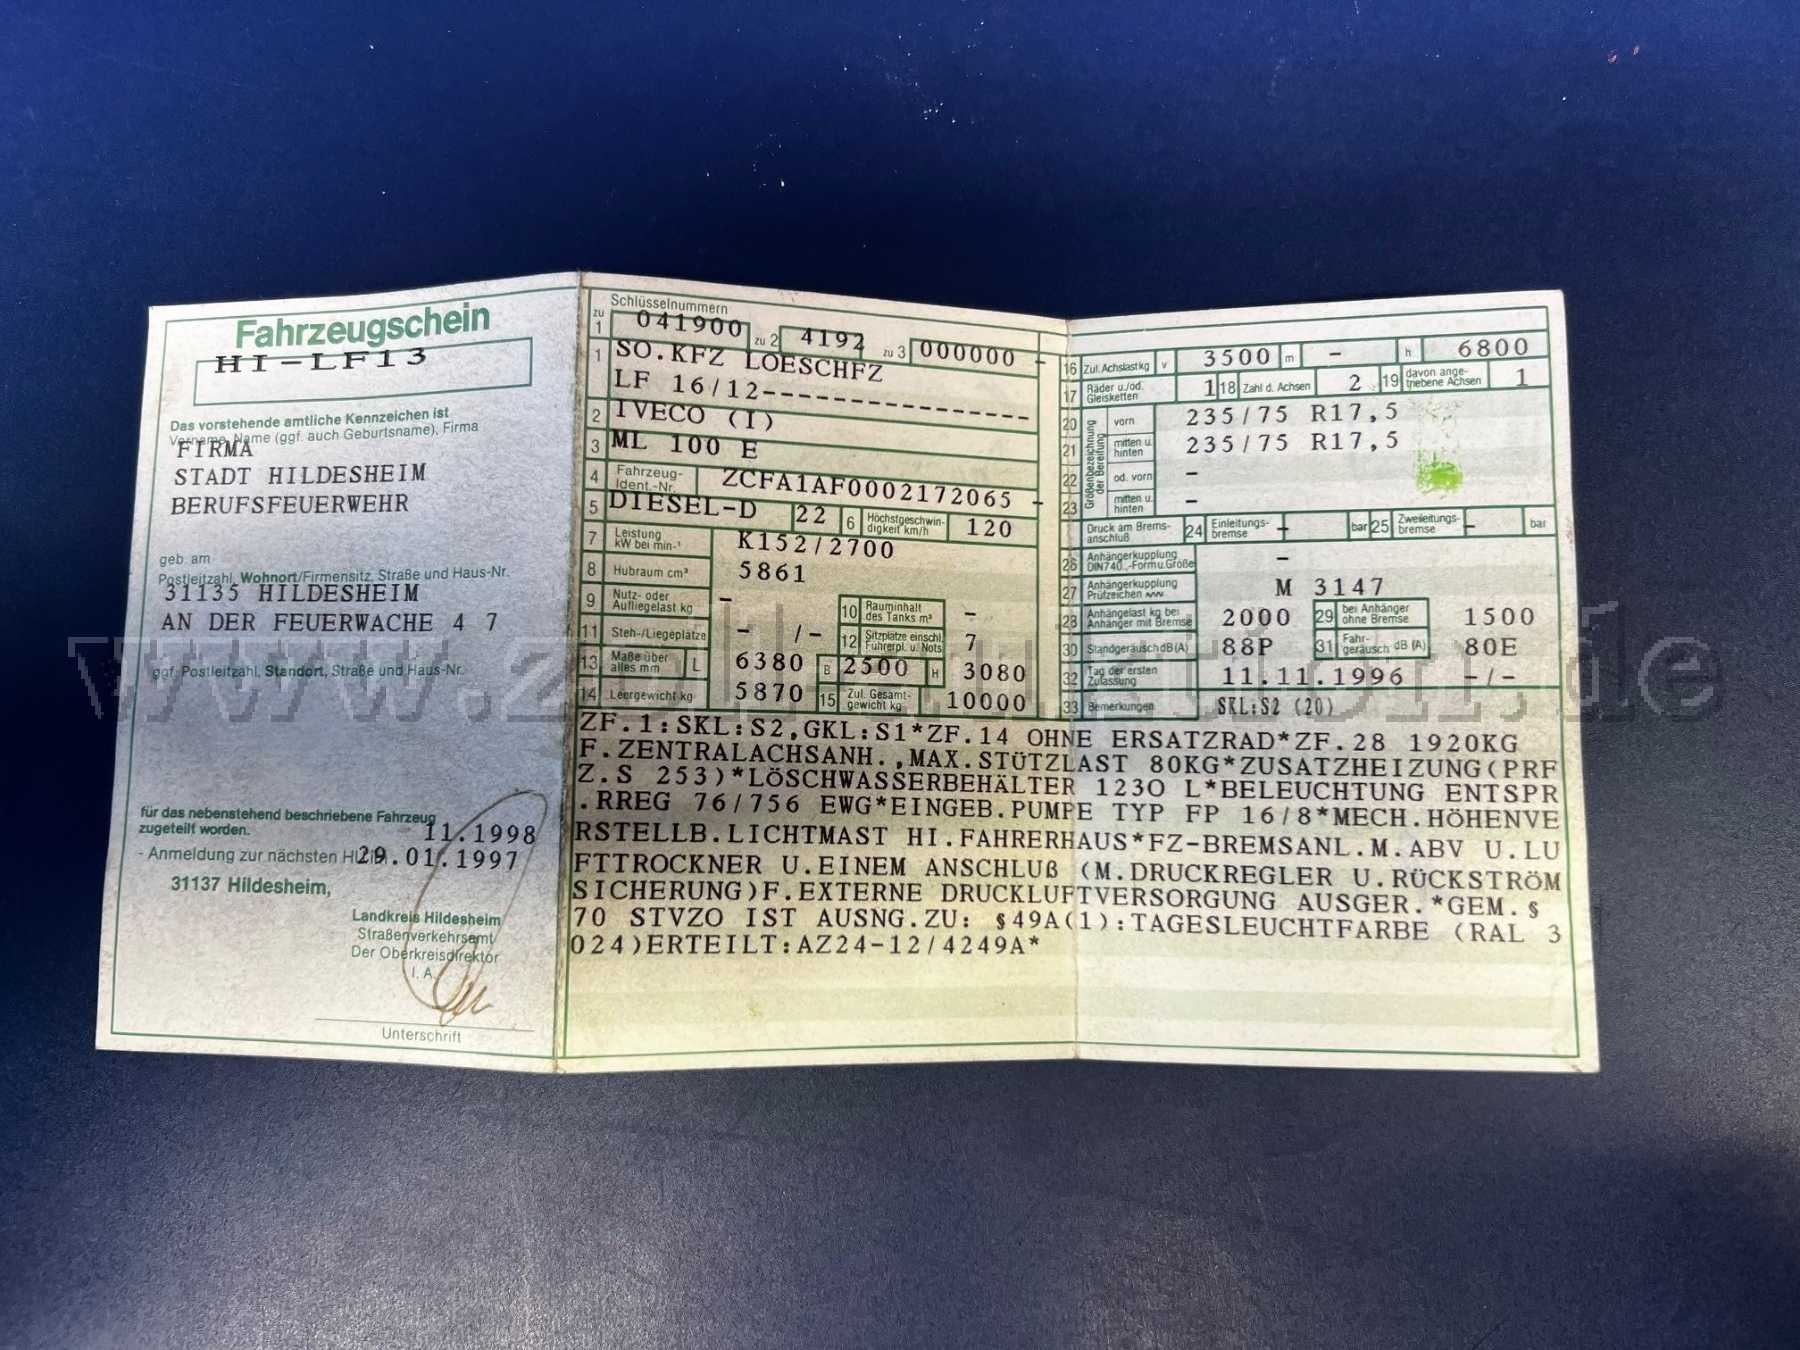 Fahrzeugschein
HI-LF13
Das vorstehende amtliche Kennzeichen ist
Vorname, Name (ggf. auch Geburtsname), Firma
FIRMA
STADT HILDESHEIM
BERUFSFEUERWEHR
geb. am
Postleitzahl, Wohnort/Firmensitz, Straße und Haus-Nr.
31135 HILDESHEIM
AN DER FEUERWACHE 4 7
ggf. Postleitzahl, Standort, Straße und Haus-Nr.
für das nebenstehend beschriebene Fahrzeug
zugeteilt worden.
11.1998
- Anmeldung zur nächsten HU im
29.01.1997
31137 Hildesheim,
Landkreis Hildesheim
Straßenverkehrsamt
Der Oberkreisdirektor
I. A.
Unterschrift
Schlüsselnummern
zu 1 041900 zu 2 4192 zu 3 000000 -
1 SO.KFZ LOESCHFZ
LF 16/12----------------
2 IVECO (I)
3 ML 100 E
4 Fahrzeug-Ident.-Nr. ZCFA1AF0002172065 -
5 DIESEL-D 22 6 Höchstgeschwindigkeit km/h 120
7 Leistung kW bei min-¹ K152/2700
8 Hubraum cm³ 5861
9 Nutz- oder Aufliegelast kg - 10 Rauminhalt des Tanks m³ -
11 Steh-/Liegeplätze - /- 12 Sitzplätze einschl. Führerpl. u. Nots 7
13 Maße über alles mm L 6380 B 2500 H 3080
14 Leergewicht kg 5870 15 Zul. Gesamtgewicht kg 10000
16 Zul. Achslast kg v 3500 m - h 6800
17 Räder u./od. Gleisketten 1 18 Zahl d. Achsen 2 19 davon angetriebene Achsen 1
Größenbezeichnung der Bereifung
20 vorn 235/75 R17,5
21 mitten u. hinten 235/75 R17,5
22 od. vorn -
23 mitten u. hinten -
Druck am Bremsanschluß 24 Einleitungsbremse - bar 25 Zweileitungsbremse - bar
26 Anhängerkupplung DIN740..-Form u. Größe -
27 Anhängerkupplung Prüfzeichen M 3147
28 Anhängelast kg bei Anhänger mit Bremse 2000 29 bei Anhänger ohne Bremse 1500
30 Standgeräusch dB (A) 88P 31 Fahrgeräusch dB (A) 80E
32 Tag der ersten Zulassung 11.11.1996 -/-
33 Bemerkungen SKL:S2 (20)
ZF.1:SKL:S2,GKL:S1*ZF.14 OHNE ERSATZRAD*ZF.28 1920KG
F.ZENTRALACHSANH.,MAX.STÜTZLAST 80KG*ZUSATZHEIZUNG(PRF
Z.S 253)*LÖSCHWASSERBEHÄLTER 1230 L*BELEUCHTUNG ENTSPR
.RREG 76/756 EWG*EINGEB.PUMPE TYP FP 16/8*MECH.HÖHENVE
RSTELLB.LICHTMAST HI.FAHRERHAUS*FZ-BREMSANL.M.ABV U.LU
FTTROCKNER U.EINEM ANSCHLUß (M.DRUCKREGLER U.RÜCKSTRÖM
SICHERUNG)F.EXTERNE DRUCKLUFTVERSORGUNG AUSGER.*GEM.§
70 STVZO IST AUSNG.ZU: §49A(1):TAGESLEUCHTFARBE (RAL 3
024)ERTEILT:AZ24-12/4249A*
www.zoll-auktion.de